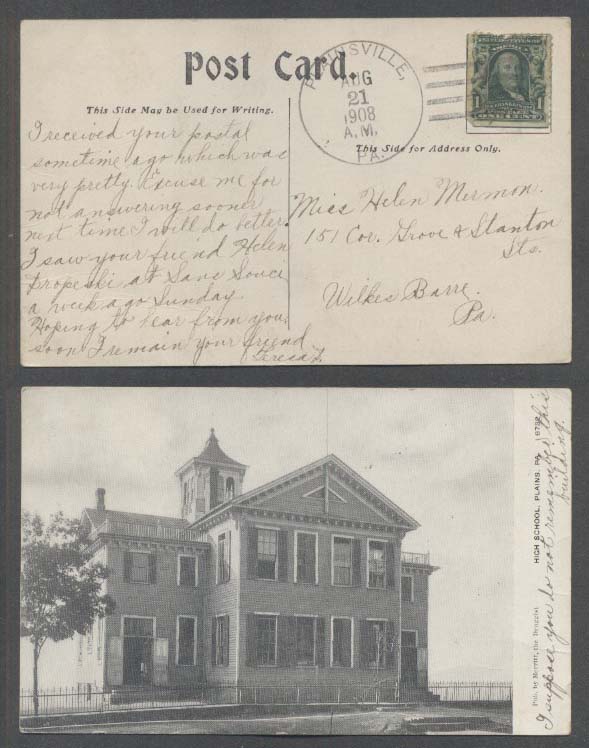 Post Card.
PLAINSVILLE,
AUG
21
1908
A.M.
PA.
1 1
ONE CENT
This Side May be Used for Writing.
This Side for Address Only.
I received your postal
sometime ago which was
very pretty. Excuse me for
not answering sooner
next time I will do better.
I saw your friend Helen
Propeski at Sans Souci
a week ago Sunday.
Hoping to hear from you
soon I remain your friend
Teresa
Miss Helen Mermon.
151 Cor. Grove & Stanton
Sts.
Wilkes Barre.
Pa.
HIGH SCHOOL, PLAINS, PA.
Pub. by Merritt, the Druggist
I suppose you do not remember this
building.